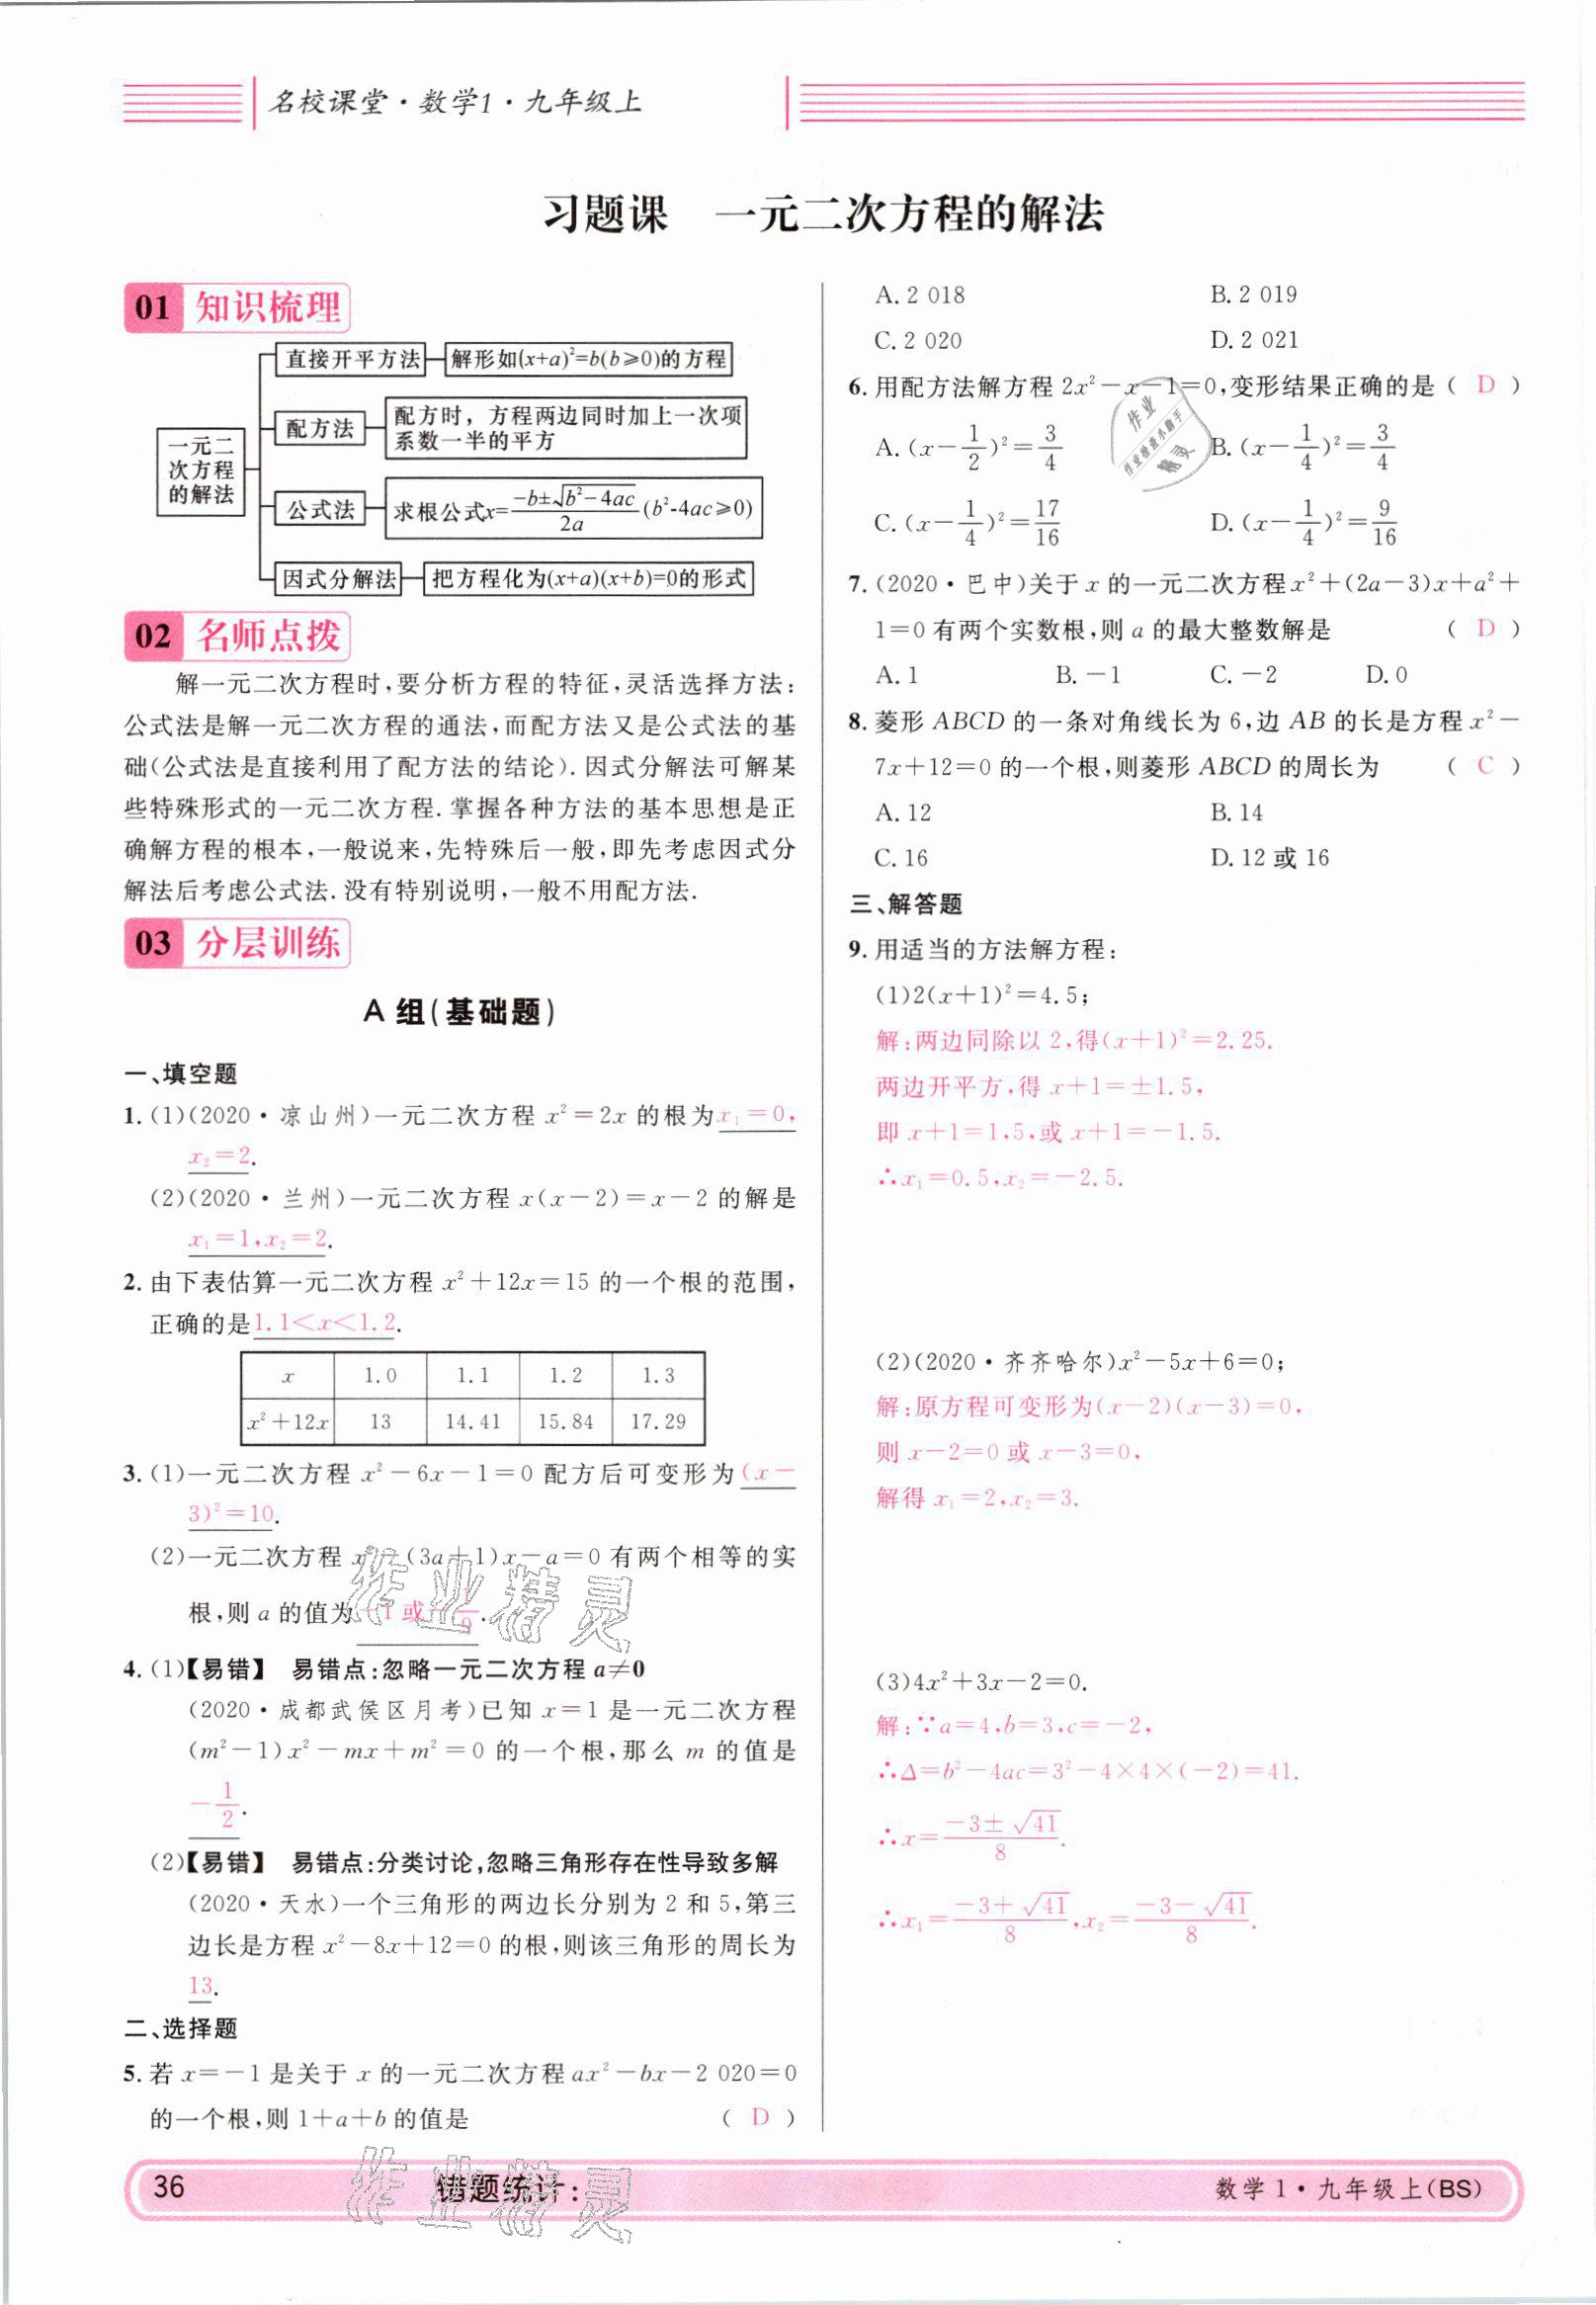 名校课堂·数学1·九年级上
习题课 一元二次方程的解法
01 知识梳理
一元二次方程的解法
直接开平方法 解形如(x+a)²=b(b≥0)的方程
配方法 配方时，方程两边同时加上一次项
系数一半的平方
公式法 求根公式x=(-b±√(b²-4ac))/2a (b²-4ac≥0)
因式分解法 把方程化为(x+a)(x+b)=0的形式
02 名师点拨
解一元二次方程时,要分析方程的特征,灵活选择方法:
公式法是解一元二次方程的通法,而配方法又是公式法的基
础(公式法是直接利用了配方法的结论).因式分解法可解某
些特殊形式的一元二次方程.掌握各种方法的基本思想是正
确解方程的根本,一般说来,先特殊后一般,即先考虑因式分
解法后考虑公式法.没有特别说明,一般不用配方法.
03 分层训练
A 组(基础题)
一、填空题
1.(1)(2020·凉山州)一元二次方程 x²=2x 的根为x₁=0,
x₂=2.
(2)(2020·兰州)一元二次方程 x(x-2)=x-2 的解是
x₁=1,x₂=2.
2.由下表估算一元二次方程 x²+12x=15 的一个根的范围,
正确的是1.1<x<1.2.
x 1.0 1.1 1.2 1.3
x²+12x 13 14.41 15.84 17.29
3.(1)一元二次方程 x²-6x-1=0 配方后可变形为(x-
3)²=10.
(2)一元二次方程 x (3a+1)x-a=0 有两个相等的实
根,则 a 的值为-1 或 9.
4.(1)【易错】 易错点:忽略一元二次方程 a≠0
(2020·成都武侯区月考)已知 x=1 是一元二次方程
(m²-1)x²-mx+m²=0 的一个根,那么 m 的值是
-1/2.
(2)【易错】 易错点:分类讨论,忽略三角形存在性导致多解
(2020·天水)一个三角形的两边长分别为 2 和 5,第三
边长是方程 x²-8x+12=0 的根,则该三角形的周长为
13.
二、选择题
5.若 x=-1 是关于 x 的一元二次方程 ax²-bx-2 020=0
的一个根,则 1+a+b 的值是 ( D )
A.2 018 B.2 019
C.2 020 D.2 021
6.用配方法解方程 2x²-x-1=0,变形结果正确的是( D )
A.(x-1/2)²=3/4 B.(x-1/4)²=3/4
C.(x-1/4)²=17/16 D.(x-1/4)²=9/16
7.(2020·巴中)关于 x 的一元二次方程 x²+(2a-3)x+a²+
1=0 有两个实数根,则 a 的最大整数解是 ( D )
A.1 B.-1 C.-2 D.0
8.菱形 ABCD 的一条对角线长为 6,边 AB 的长是方程 x²-
7x+12=0 的一个根,则菱形 ABCD 的周长为 ( C )
A.12 B.14
C.16 D.12 或 16
三、解答题
9.用适当的方法解方程:
(1)2(x+1)²=4.5;
解:两边同除以 2,得(x+1)²=2.25.
两边开平方,得 x+1=±1.5,
即 x+1=1.5,或 x+1=-1.5.
∴x₁=0.5,x₂=-2.5.
(2)(2020·齐齐哈尔)x²-5x+6=0;
解:原方程可变形为(x-2)(x-3)=0,
则 x-2=0 或 x-3=0,
解得 x₁=2,x₂=3.
(3)4x²+3x-2=0.
解:∵a=4,b=3,c=-2,
∴Δ=b²-4ac=3²-4×4×(-2)=41.
∴x=(-3±√41)/8.
∴x₁=(-3+√41)/8,x₂=(-3-√41)/8.
作业
作业检查小助手
精灵
作业精灵
作业精灵
36 错题统计: 数学 1·九年级上(BS)